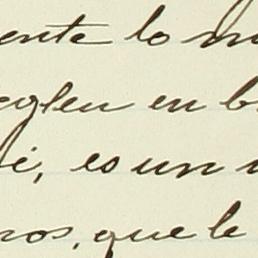 ente lo m
eglen en b
i, es un
ros, que le